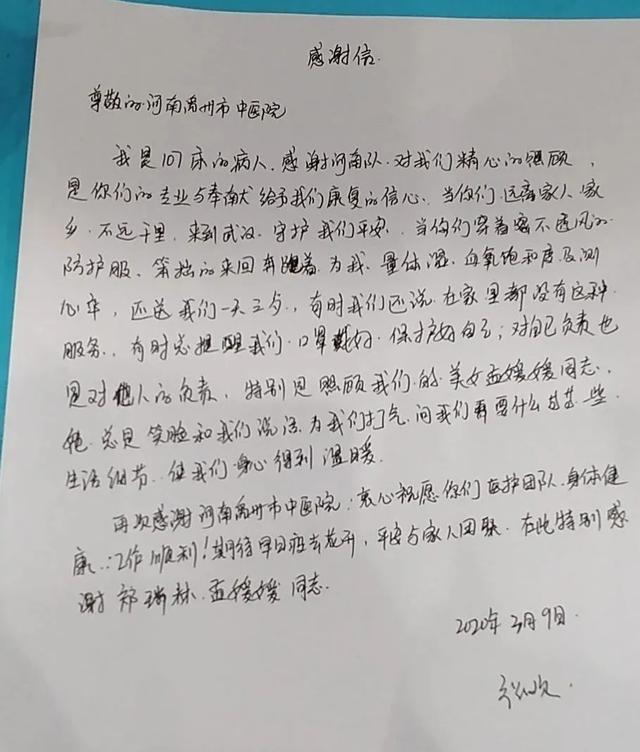 感谢信.
尊敬的河南禹州市中医院
我是107床的病人、感谢河南队.对我们精心的照顾,
是你们的专业与奉献给予我们康复的信心、当你们远离家人、家
乡.不远千里.来到武汉.守护我们平安、当你们穿着密不透风的
防护服、笨拙的来回奔跑着.为我.量体温.血氧饱和度及测
心率,还送我们一天三夕,有时我们还说.在家里都没有这种
服务,有时总提醒我们.口罩戴好.保护好自己;对自己负责也
是对他人的负责,特别是照顾我们的美女孟媛媛同志,
她.总是笑脸和我们说话.为我们打气.问我们需要什么.某些
生活细节.使我们身心得到温暖.
再次感谢河南禹州市中医院:衷心祝愿你们医护团队.身体健
康.:工作顺利!期待早日班去花开,平安与家人团聚.在此特别感
谢郑瑞林.孟媛媛同志.
2020年3月9日.